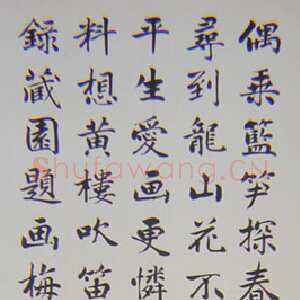 偶乘籃筍探春
尋到龍山花不
平生愛画更憐
料想黄樓吹笛
錄藏園題画梅
Shufawang.CN